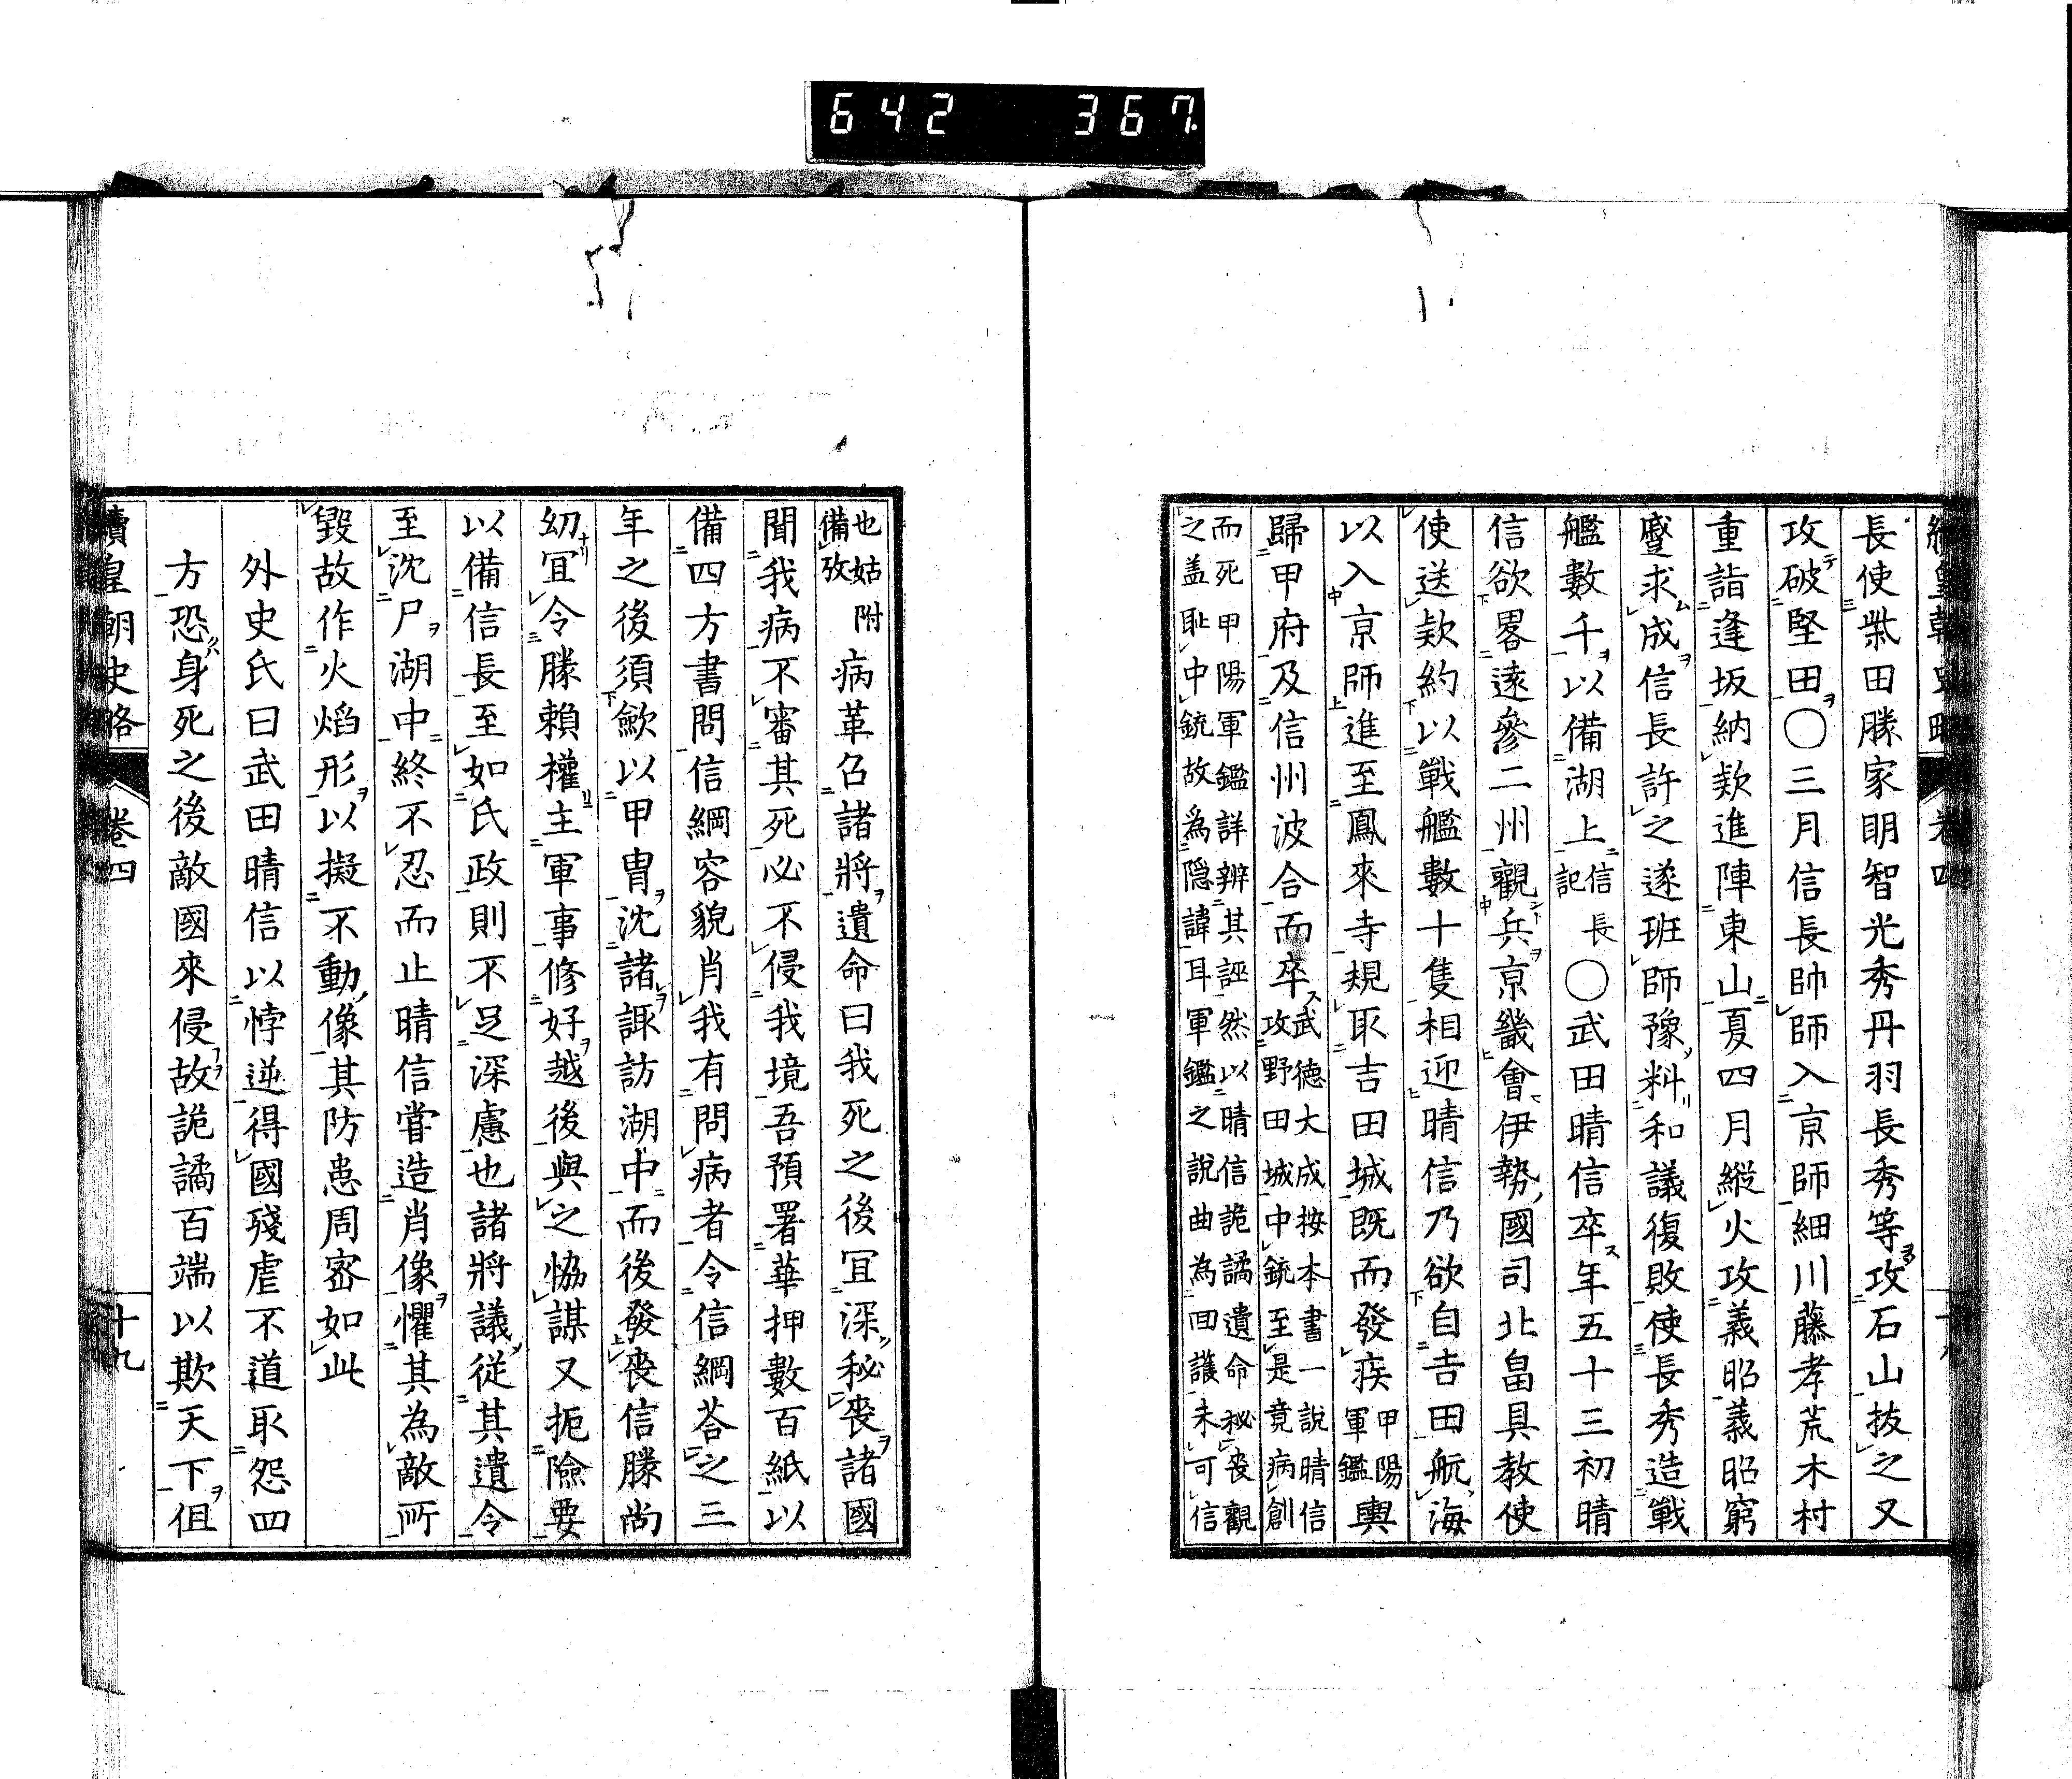 642 367
續皇朝史略 卷四
長使柴田勝家明智光秀丹羽長秀等攻石山拔之又
攻破堅田〇三月信長帥師入京師細川藤孝荒木村
重詣逢坂納款進陣東山夏四月縱火攻義昭義昭窮
蹙求成信長許之遂班師豫料和議復敗使長秀造戰
艦數千以備湖上信長記〇武田晴信卒年五十三初晴
信欲畧遠參二州觀兵京畿會伊勢國司北畠具教使
使送款約以戰艦數十隻相迎晴信乃欲自吉田航海
以入京師進至鳳來寺規取吉田城既而發疾甲陽軍鑑輿
歸甲府及信州波合而卒武德大成按本書一說晴信攻野田城中銃至是竟病創
而死甲陽軍鑑詳辨其誣然以晴信詭譎遺命秘喪觀
之盖耻中銃故為隱諱耳軍鑑之說曲為回護未可信
也姑附備攷病革召諸將遺命曰我死之後宜深秘喪諸國
聞我病不審其死必不侵我境吾預署華押數百紙以
備四方書問信綱容貌肖我有問病者令信綱荅之三
年之後須歛以甲冑沈諸諏訪湖中而後發喪信勝尚
幼宜令勝賴權主軍事修好越後與之恊謀又扼險要
以備信長至如氏政則不足深慮也諸將議從其遺令
至沈尸湖中終不忍而止晴信甞造肖像懼其為敵所
毀故作火焰形以擬不動像其防患周密如此
外史氏曰武田晴信以悖逆得國殘虐不道取怨四
方恐身死之後敵國來侵故詭譎百端以欺天下但
續皇朝史略 卷四 十九